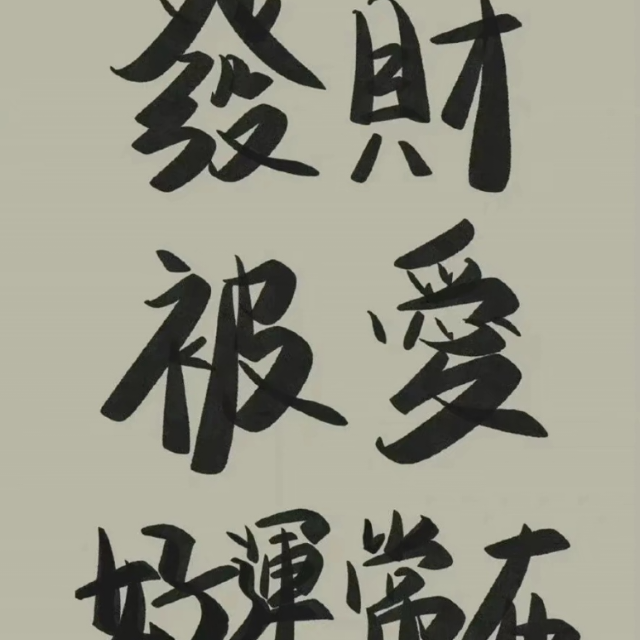 發財
被愛
好運常在